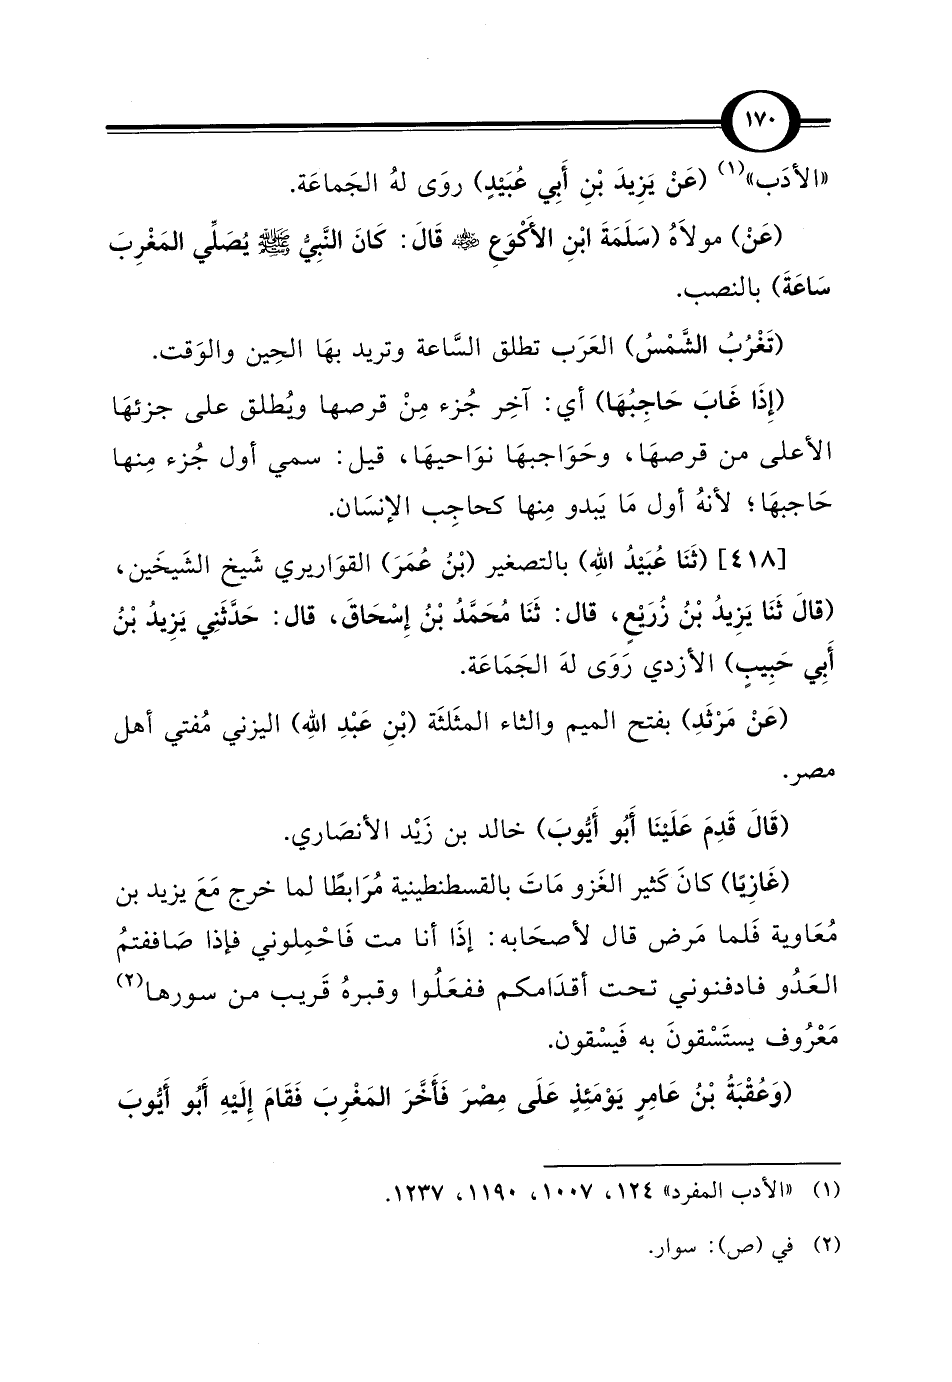 ١٧٠
«الأدَب»(١) (عَنْ يَزِيدَ بْنِ أَبِي عُبَيْدٍ) روَى لهُ الجَماعَة.
(عَنْ) مولاَهُ (سَلَمَةَ ابْنِ الأَكْوَعِ ﵁ قَالَ: كَانَ النَّبِيُّ ﷺ يُصَلِّي المَغْرِبَ
سَاعَةَ) بالنصب.
(تَغْرُبُ الشَّمْسُ) العَرَب تطلق السَّاعة وتريد بهَا الحِين والوَقت.
(إِذَا غَابَ حَاجِبُهَا) أي: آخِر جُزء مِنْ قرصها ويُطلق على جزئهَا
الأعلى من قرصهَا، وحَوَاجبهَا نوَاحيهَا، قيل: سمي أول جُزء مِنها
حَاجبهَا؛ لأنهُ أول مَا يَبدو مِنها كحاجِب الإنسَان.
[٤١٨] (ثَنَا عُبَيْدُ اللهِ) بالتصغير (بْنُ عُمَرَ) القوَاريري شَيخ الشَيخَين،
(قَالَ ثَنَا يَزِيدُ بْنُ زُرَيْعٍ، قال: ثَنَا مُحَمَّدُ بْنُ إِسْحَاقَ، قال: حَدَّثَنِي يَزِيدُ بْنُ
أَبِي حَبِيبٍ) الأزدي رَوَى لهَ الجَمَاعَة.
(عَنْ مَرْثَدِ) بفتح الميم والثاء المثَلثَة (بْنِ عَبْدِ اللهِ) اليزني مُفتي أهل
مصر.
(قَالَ قَدِمَ عَلَيْنَا أَبُو أَيُّوبَ) خالد بن زَيْد الأنصَاري.
(غَازِيًا) كانَ كَثير الغَزو مَاتَ بالقسطنطينية مُرَابطًا لما خرج مَعَ يزيد بن
مُعَاوية فَلما مَرض قال لأصحَابه: إذَا أنا مت فَاحْمِلوني فإذا صَاففتمُ
العَدُو فادفنوني تحت أقدَامكم ففعَلُوا وقبرهُ قَريب من سورها(٢)
مَعْرُوف يستَسْقونَ به فَيسْقون.
(وَعُقْبَةُ بْنُ عَامِرٍ يَوْمَئِذٍ عَلَى مِصْرَ فَأَخَّرَ المَغْرِبَ فَقَامَ إِلَيْهِ أَبُو أَيُّوبَ
(١) «الأدب المفرد» ١٢٤، ١٠٠٧، ١١٩٠، ١٢٣٧.
(٢) في (ص): سوار.